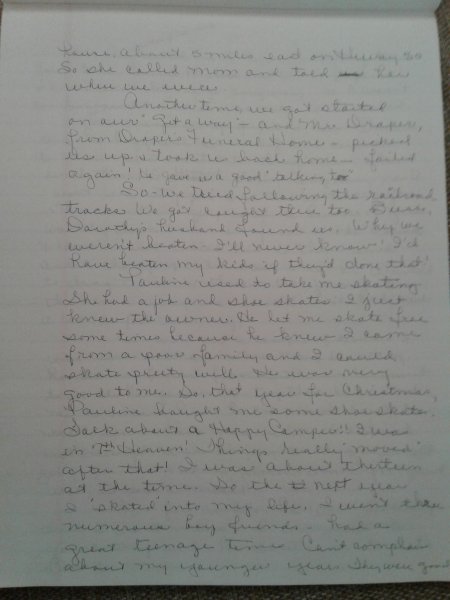 hours, about 5 miles east on Hiway 30
So she called Mom and told her
where we were.
Another time, we got started
on our "Get a way" - and Mr. Draper,
from Drapers Funeral Home - picked
us up & took us back home - foiled
again! he gave us a good "talking to"
So - we tried following the railroad
tracks We got caught there too.
Dorothy's husband found us. Why we
weren't beaten I'll never know! I'd
have beaten my kids if they'd done that!
Pauline used to take me skating
She had a job and shoe skates I just
knew the owner. He let me skate free
some times because he knew I came
from a poor family and I could
skate pretty well. He was very
good to me. So, that year for Christmas,
Pauline bought me some shoe skates.
Talk about a Happy Camper!! I was
in 7th Heaven! Things really "moved"
after that! I was about thirteen
at the time. So the next year
I "skated" into my life. I went thru
numerous boy friends - had a
great teenage time. Can't complain
about my younger years They were good